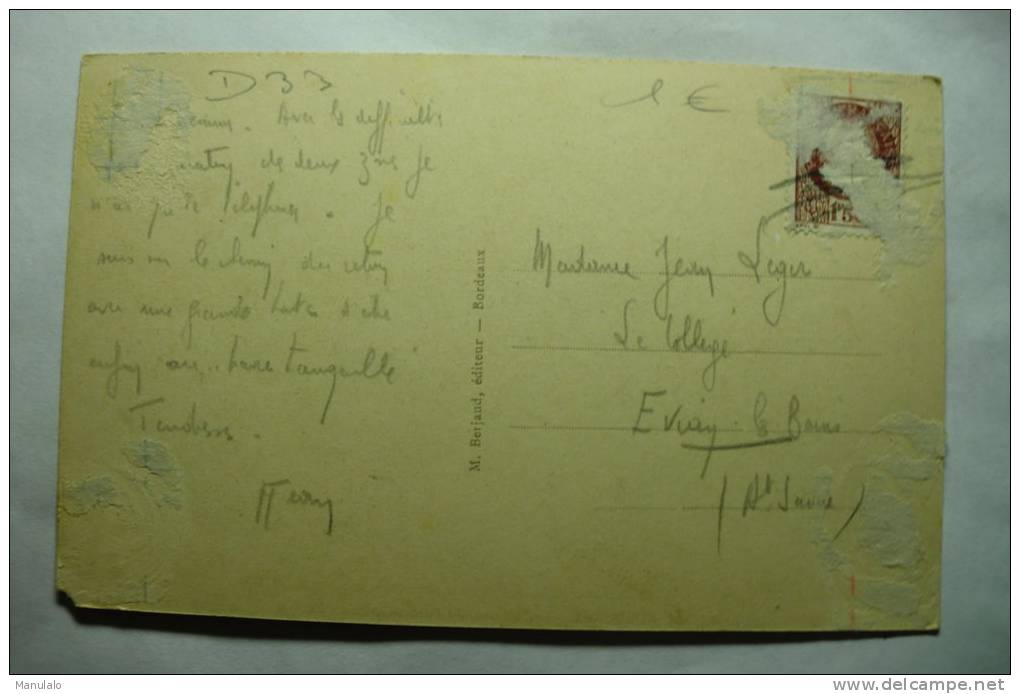 D 33
1 €
Avec les difficultés
de deux Je
Je
suis sur le chemin du retour
avec une grande hate d'être
enfin au havre tranquille
Tendresse.
Jean
M. Berjaud, éditeur — Bordeaux
1F50
Madame Jean Leger
Le Collège
Evian-les-Bains
(Hte Savoie)
Manulalo
www.delcampe.net